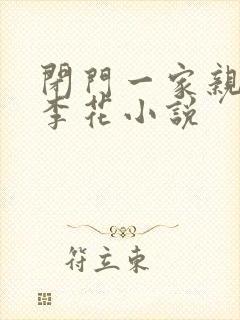 閉門一家親
李花小説
符立東